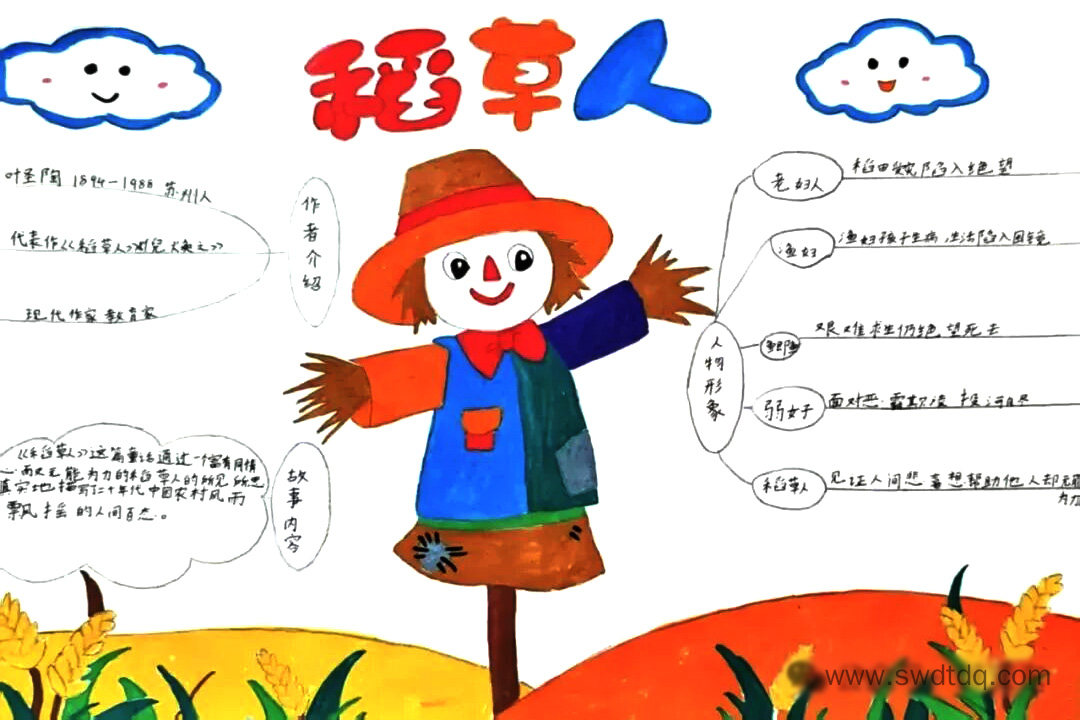 稻草人
叶圣陶 1894-1988 苏州人
代表作《稻草人》
现代作家 教育家
作者介绍
《稻草人》这篇童话通过一个富有同情
而又无能为力的稻草人的所见所思
真实地描写二十年代中国农村风雨
飘摇的人间百态。
故事内容
人物形象
老妇人
稻田被毁陷入绝望
渔妇
渔妇孩子生病,生活陷入困境
鲫鱼
艰难求生仍绝望死去
弱女子
面对恶霸欺凌 投河自尽
稻草人
见证人间悲喜想帮助他人却无能
为力
www.swdtdq.com